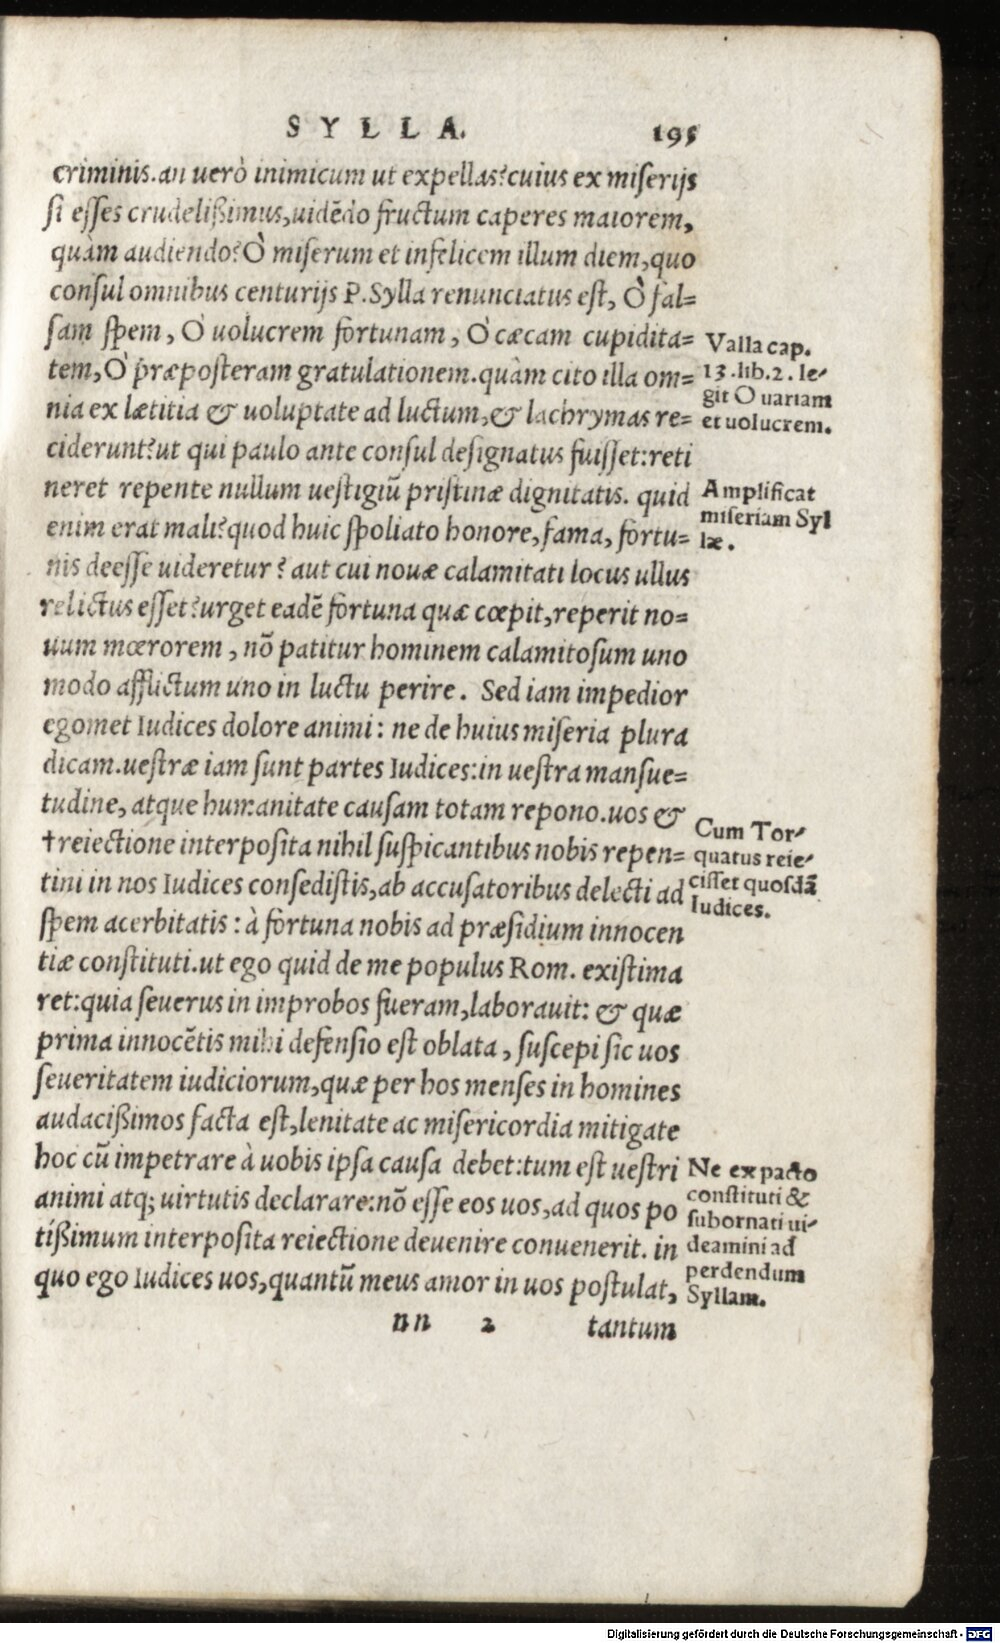 SYLLA. 195
criminis.an uerò inimicum ut expellas?cuius ex miserijs
si esses crudelißimus,uidẽdo fructum caperes maiorem,
quàm audiendo?Ò miserum et infelicem illum diem,quo
consul omnibus centurijs P.Sylla renunciatus est, Ò fal=
sam spem, Ò uolucrem fortunam, Ò cæcam cupidita=
tem,Ò præposteram gratulationem.quàm cito illa om=
nia ex lætitia & uoluptate ad luctum,& lachrymas re=
ciderunt?ut qui paulo ante consul designatus fuisset:reti
neret repente nullum uestigiũ pristinæ dignitatis. quid
enim erat mali?quod huic spoliato honore,fama, fortu=
nis deesse uideretur? aut cui nouæ calamitati locus ullus
relictus esset?urget eadẽ fortuna quæ cœpit,reperit no=
uum mœrorem, nõ patitur hominem calamitosum uno
modo afflictum uno in luctu perire. Sed iam impedior
egomet Iudices dolore animi: ne de huius miseria plura
dicam.uestræ iam sunt partes Iudices:in uestra mansue=
tudine, atque humanitate causam totam repono.uos &
†reiectione interposita nihil suspicantibus nobis repen=
tini in nos Iudices consedistis,ab accusatoribus delecti ad
spem acerbitatis: à fortuna nobis ad præsidium innocen
tiæ constituti.ut ego quid de me populus Rom. existima
ret:quia seuerus in improbos fueram,laborauit: & quæ
prima innocẽtis mihi defensio est oblata, suscepi sic uos
seueritatem iudiciorum,quæ per hos menses in homines
audacißimos facta est,lenitate ac misericordia mitigate
hoc cũ impetrare à uobis ipsa causa debet:tum est uestri
animi atq; uirtutis declarare:nõ esse eos uos,ad quos po
tißimum interposita reiectione deuenire conuenerit. in
quo ego Iudices uos,quantũ meus amor in uos postulat,
nn 2 tantum
Valla cap.
13.lib.2. le-
git O uariam
et uolucrem.
Amplificat
miseriam Syl
læ.
Cum Tor-
quatus reie-
cisset quosdã
Iudices.
Ne ex pacto
constituti &
subornati ui-
deamini ad
perdendum
Syllam.
Digitalisierung gefördert durch die Deutsche Forschungsgemeinschaft - DFG